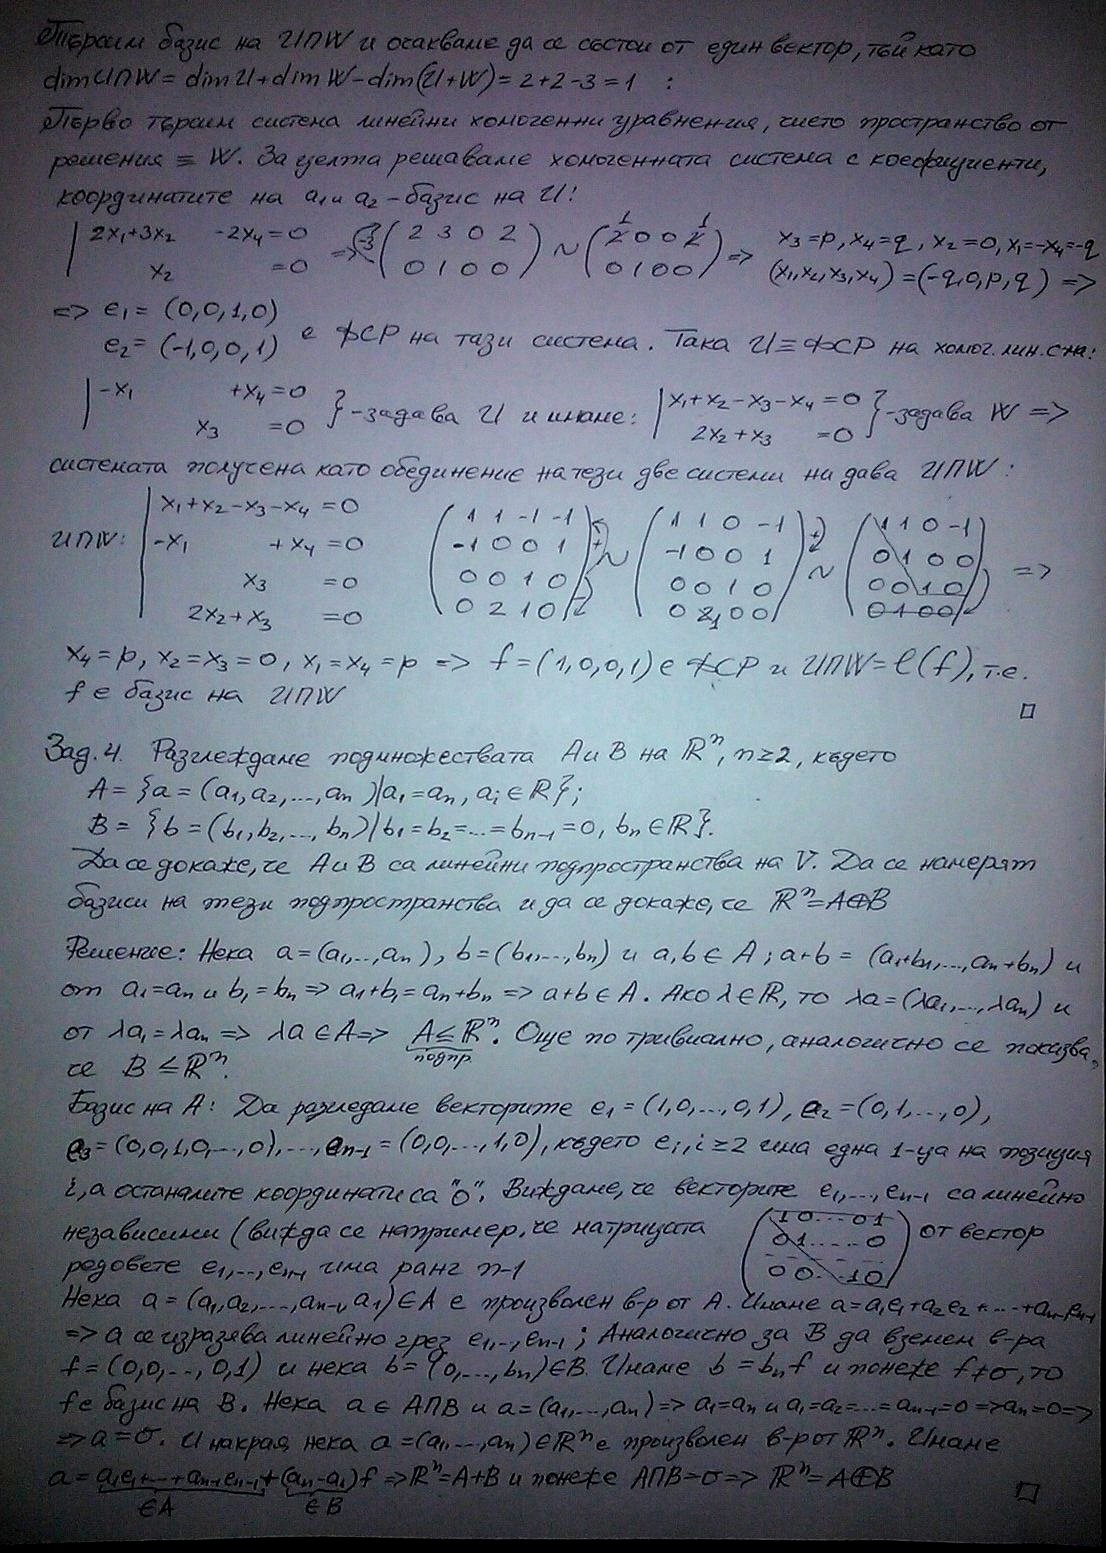 Търсим базис на U∩W и очакваме да се състои от един вектор, тъй като
dim U∩W = dim U + dim W - dim(U+W) = 2+2-3 = 1 :
Първо търсим система линейни хомогенни уравнения, чието пространство от
решения ≡ W. За целта решаваме хомогенната система с коефициенти,
координатите на a₁ и a₂ - базис на U:
| 2x₁+3x₂ -2x₄ = 0 => (2 3 0 2) ~ (2 0 0 2) => x₃ = p, x₄ = q, x₂ = 0, x₁ = -x₄ = -q
| x₂ = 0 (0 1 0 0) (0 1 0 0) (x₁,x₂,x₃,x₄) = (-q,0,p,q) =>
=> e₁ = (0,0,1,0)
e₂ = (-1,0,0,1) е ФСР на тази система. Така U ≡ ФСР на хомог. лин. с-ма:
| -x₁ +x₄ = 0
| x₃ = 0 } - задава U и имаме: | x₁+x₂-x₃-x₄ = 0
| 2x₂+x₃ = 0 } - задава W =>
системата получена като обединение на тези две системи ни дава U∩W:
U∩W: | x₁+x₂-x₃-x₄ = 0 (1 1 -1 -1) (1 1 0 -1) (1 1 0 -1)
| -x₁ +x₄ = 0 (-1 0 0 1) ~ (-1 0 0 1) ~ (0 1 0 0) =>
| x₃ = 0 (0 0 1 0) (0 0 1 0) (0 0 1 0)
| 2x₂+x₃ = 0 (0 2 1 0) (0 2 0 0) (0 1 0 0)
x₄ = p, x₂ = x₃ = 0, x₁ = x₄ = p => f = (1,0,0,1) е ФСР и U∩W = ℓ(f), т.е.
f е базис на U∩W □
Зад. 4. Разглеждаме подмножествата A и B на ℝⁿ, n ≥ 2, където
A = {a = (a₁, a₂, ..., aₙ) | a₁ = aₙ, aᵢ ∈ ℝ};
B = {b = (b₁, b₂, ..., bₙ) | b₁ = b₂ = ... = bₙ₋₁ = 0, bₙ ∈ ℝ}.
Да се докаже, че A и B са линейни подпространства на V. Да се намерят
базиси на тези подпространства и да се докаже, че ℝⁿ = A⊕B
Решение: Нека a = (a₁,...,aₙ), b = (b₁,...,bₙ) и a,b ∈ A; a+b = (a₁+b₁,...,aₙ+bₙ) и
от a₁ = aₙ и b₁ = bₙ => a₁+b₁ = aₙ+bₙ => a+b ∈ A. Ако λ ∈ ℝ, то λa = (λa₁,...,λaₙ) и
от λa₁ = λaₙ => λa ∈ A => A ≤ ℝⁿ. Още по тривиално, аналогично се показва,
подпр.
че B ≤ ℝⁿ.
Базис на A: Да разгледаме векторите e₁ = (1,0,...,0,1), e₂ = (0,1,...,0),
e₃ = (0,0,1,0,...,0),...,eₙ₋₁ = (0,0,...,1,0), където eᵢ, i ≥ 2 има една 1-ца на позиция
i, а останалите координати са "0". Виждаме, че векторите e₁,...,eₙ₋₁ са линейно
независими (вижда се например, че матрицата (1 0 ... 0 1) от вектор
(0 1 ..... 0)
редовете e₁,...,eₙ₋₁ има ранг n-1 (0 0 ... 1 0)
Нека a = (a₁,a₂,...,aₙ₋₁,a₁) ∈ A е произволен в-р от A. Имаме a = a₁e₁+a₂e₂+...+aₙ₋₁eₙ₋₁
=> a се изразява линейно чрез e₁,...,eₙ₋₁; Аналогично за B да вземем в-ра
f = (0,0,...,0,1) и нека b = (0,...,bₙ) ∈ B. Имаме b = bₙf и понеже f ≠ σ, то
f е базис на B. Нека a ∈ A∩B и a = (a₁,...,aₙ) => a₁ = aₙ и a₁ = a₂ = ... = aₙ₋₁ = 0 => aₙ = 0 =>
=> a = σ. И накрая, нека a = (a₁,...,aₙ) ∈ ℝⁿ е произволен в-р от ℝⁿ. Имаме
a = a₁e₁+...+aₙ₋₁eₙ₋₁ + (aₙ-a₁)f => ℝⁿ = A+B и понеже A∩B = σ => ℝⁿ = A⊕B □
∈A ∈B